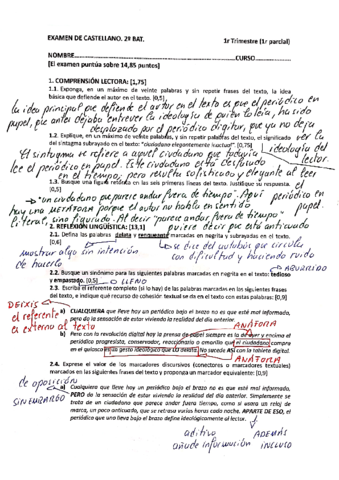 EXAMEN DE CASTELLANO. 2º BAT. 1r Trimestre (1r parcial)
NOMBRE CURSO
[El examen puntúa sobre 14,85 puntos]
1. COMPRENSIÓN LECTORA: [1,75]
1.1. Exponga, en un máximo de veinte palabras y sin repetir frases del texto, la idea
básica que defiende el autor en el texto. [0,5]
la idea principal que defiende el autor en el texto es que el periódico en
papel, que antes dejaba entrever la ideología de quien lo leía, ha sido
desplazado por el periódico digital, que ya no deja
1.2. Explique, en un máximo de veinte palabras, y sin repetir palabras del texto, el significado
ver la
del sintagma subrayado en el texto: "ciudadano elegantemente inactual". [0,75]
ideología del
lector.
El sintagma se refiere a aquel ciudadano que todavía
lee el periódico en papel. Este ciudadano está desfasado
en el tiempo; pero resulta sofisticado y elegante al leer
1.3. Busque una figura retórica en las seis primeras líneas del texto. Justifique su respuesta. el
[0,5]
periódico en
papel.
"un ciudadano que parece andar fuera de tiempo". Aquí
hay una metáfora porque el autor no habla en sentido
literal, sino figurado. Al decir "parece andar fuera de tiempo"
2. REFLEXIÓN LINGÜÍSTICA: [13,1]
quiere decir que está anticuado
2.1. Defina las palabras marcadas en negrita y subrayado en el texto.
[0,6]
se dice del autobús que circulas
con dificultad y haciendo ruido
mostrar algo sin intención
de hacerlo
ABURRIDO
2.2. Busque un sinónimo para las siguientes palabras marcadas en negrita en el texto: tedioso
y empastado. [0,5]
LLENO
2.3. Escriba el referente completo (si lo hay) de las palabras marcadas en las siguientes frases
del texto, e indique qué recurso de cohesión textual se da en el texto con estas palabras: [0,9]
DEIXIS
el referente
es externo al texto
a) CUALQUIERA que lleve hoy un periódico bajo el brazo no es que esté mal informado,
pero da la sensación de estar viviendo la realidad del día anterior.
ANÁFORA
b) Pero con la revolución digital hoy la prensa de papel siempre es la de ayer y encima el
periódico progresista, conservador, reaccionario o amarillo que el ciudadano compra
en el quiosco es un gesto ideológico que no sucede ASÍ con la tablete digital.
ANÁFORA
2.4. Exprese el valor de los marcadores discursivos (conectores o marcadores textuales)
marcados en las siguientes frases del texto y proponga un marcador equivalente: [0,9]
de oposición
SIN EMBARGO
a) Cualquiera que lleve hoy un periódico bajo el brazo no es que esté mal informado,
PERO da la sensación de estar viviendo la realidad del día anterior. Simplemente se
trata de un ciudadano que parece andar fuera tiempo, como si usara un reloj de
marca, un poco anticuado, que se retrasa varias horas cada noche. APARTE DE ESO, el
periódico que uno lleva bajo el brazo define ideológicamente al lector.
aditivo ADEMÁS
añade información INCLUSO